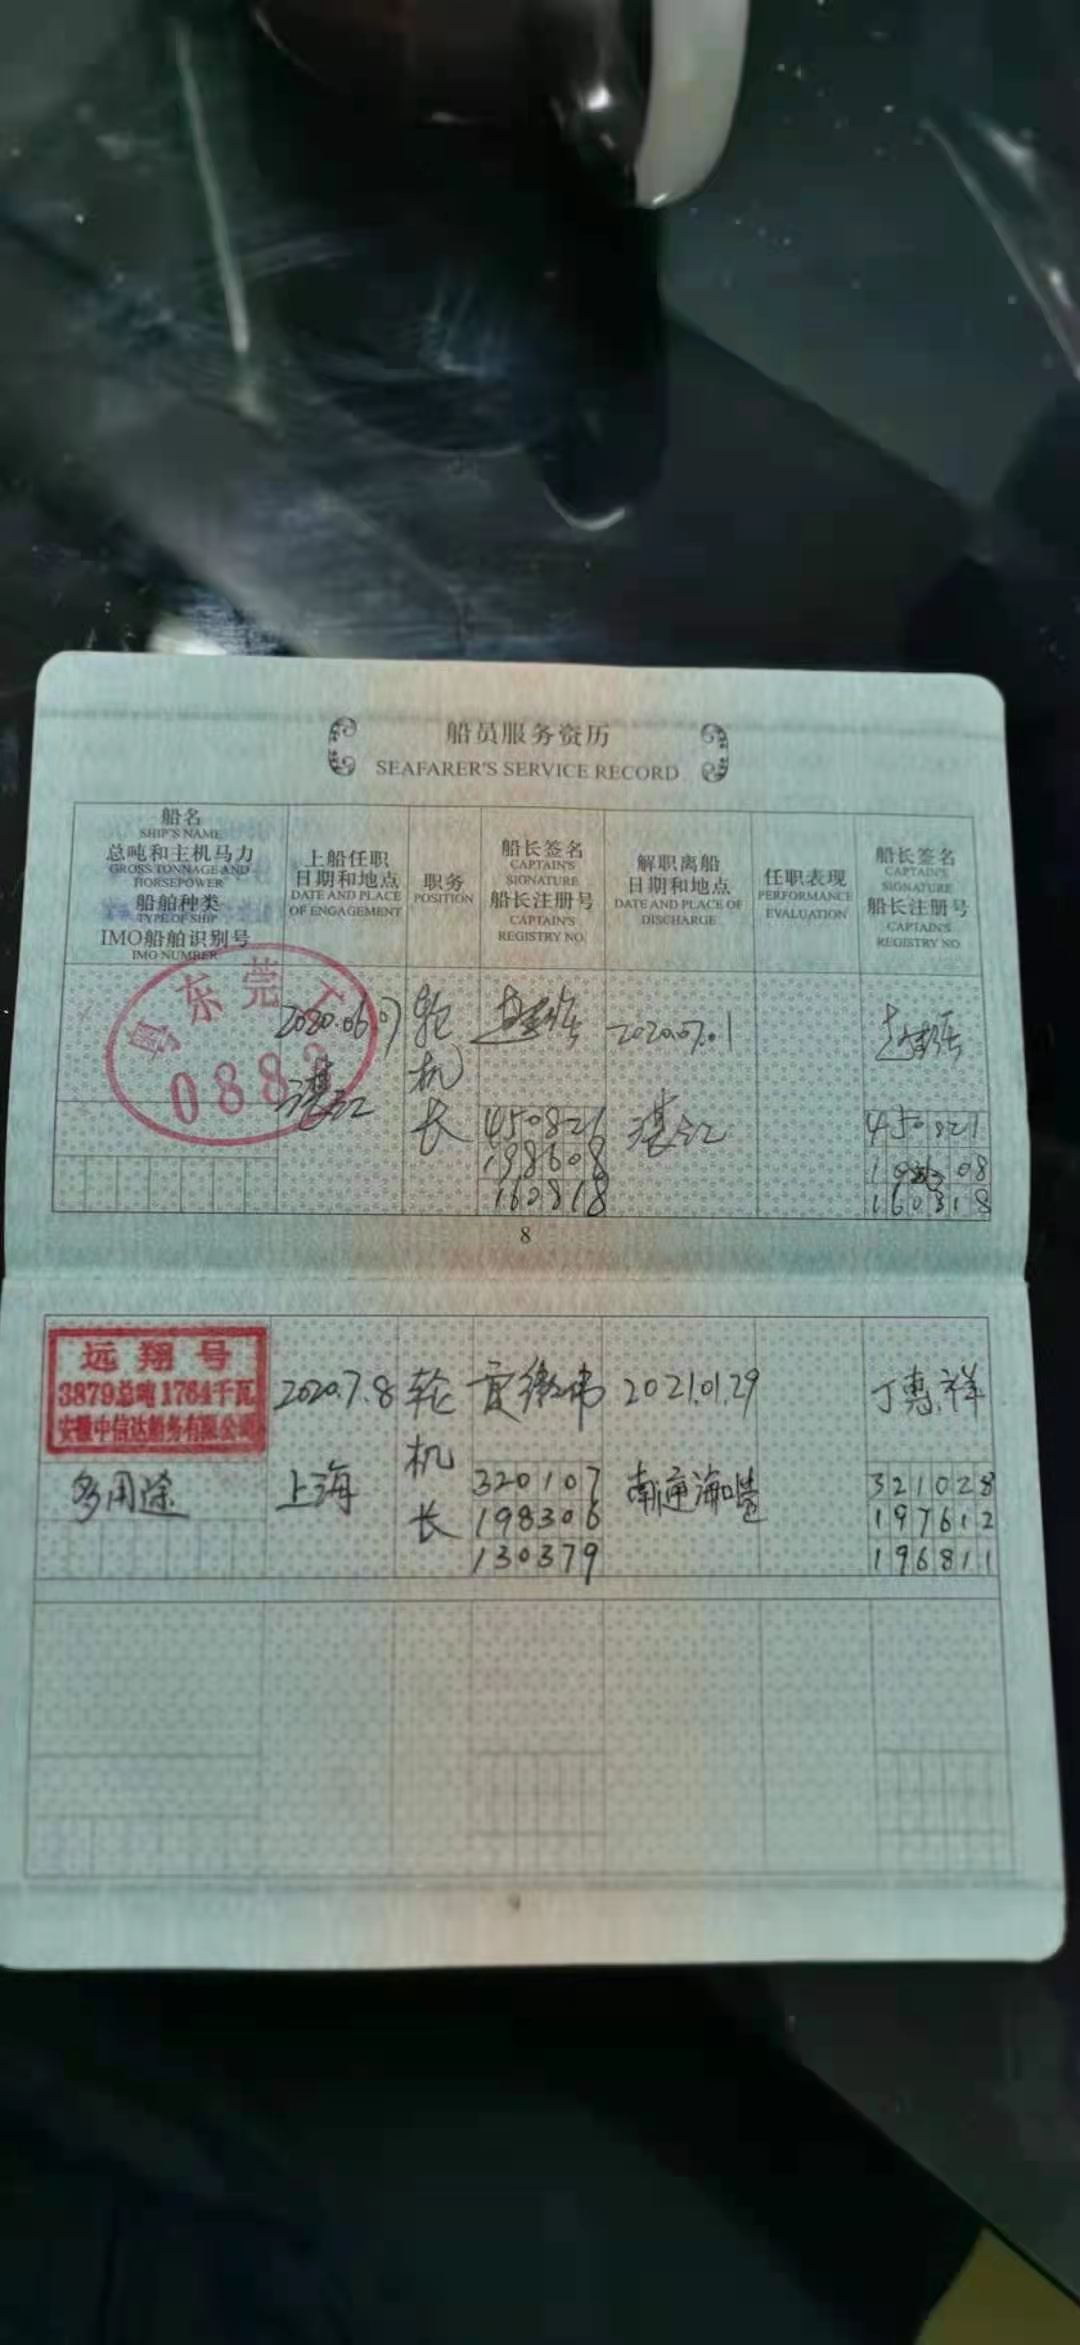 船员服务资历
SEAFARER'S SERVICE RECORD
船名
SHIP'S NAME
总吨和主机马力
GROSS TONNAGE AND
HORSEPOWER
船舶种类
TYPE OF SHIP
IMO船舶识别号
IMO NUMBER
上船任职
日期和地点
DATE AND PLACE
OF ENGAGEMENT
职务
POSITION
船长签名
CAPTAIN'S
SIGNATURE
船长注册号
CAPTAIN'S
REGISTRY NO.
解职离船
日期和地点
DATE AND PLACE OF
DISCHARGE
任职表现
PERFORMANCE
EVALUATION
船长签名
CAPTAIN'S
SIGNATURE
船长注册号
CAPTAIN'S
REGISTRY NO
粤东莞
088
2020.06.07
湛江
轮机长
450821
198608
160818
2020.07.01
湛江
450821
8
远翔号
3879总吨 1764千瓦
安徽中信达船务有限公司
多用途
2020.7.8
上海
轮机长
320107
198306
130379
2021.01.29
南通海
丁惠祥
321028
197612
196811
9